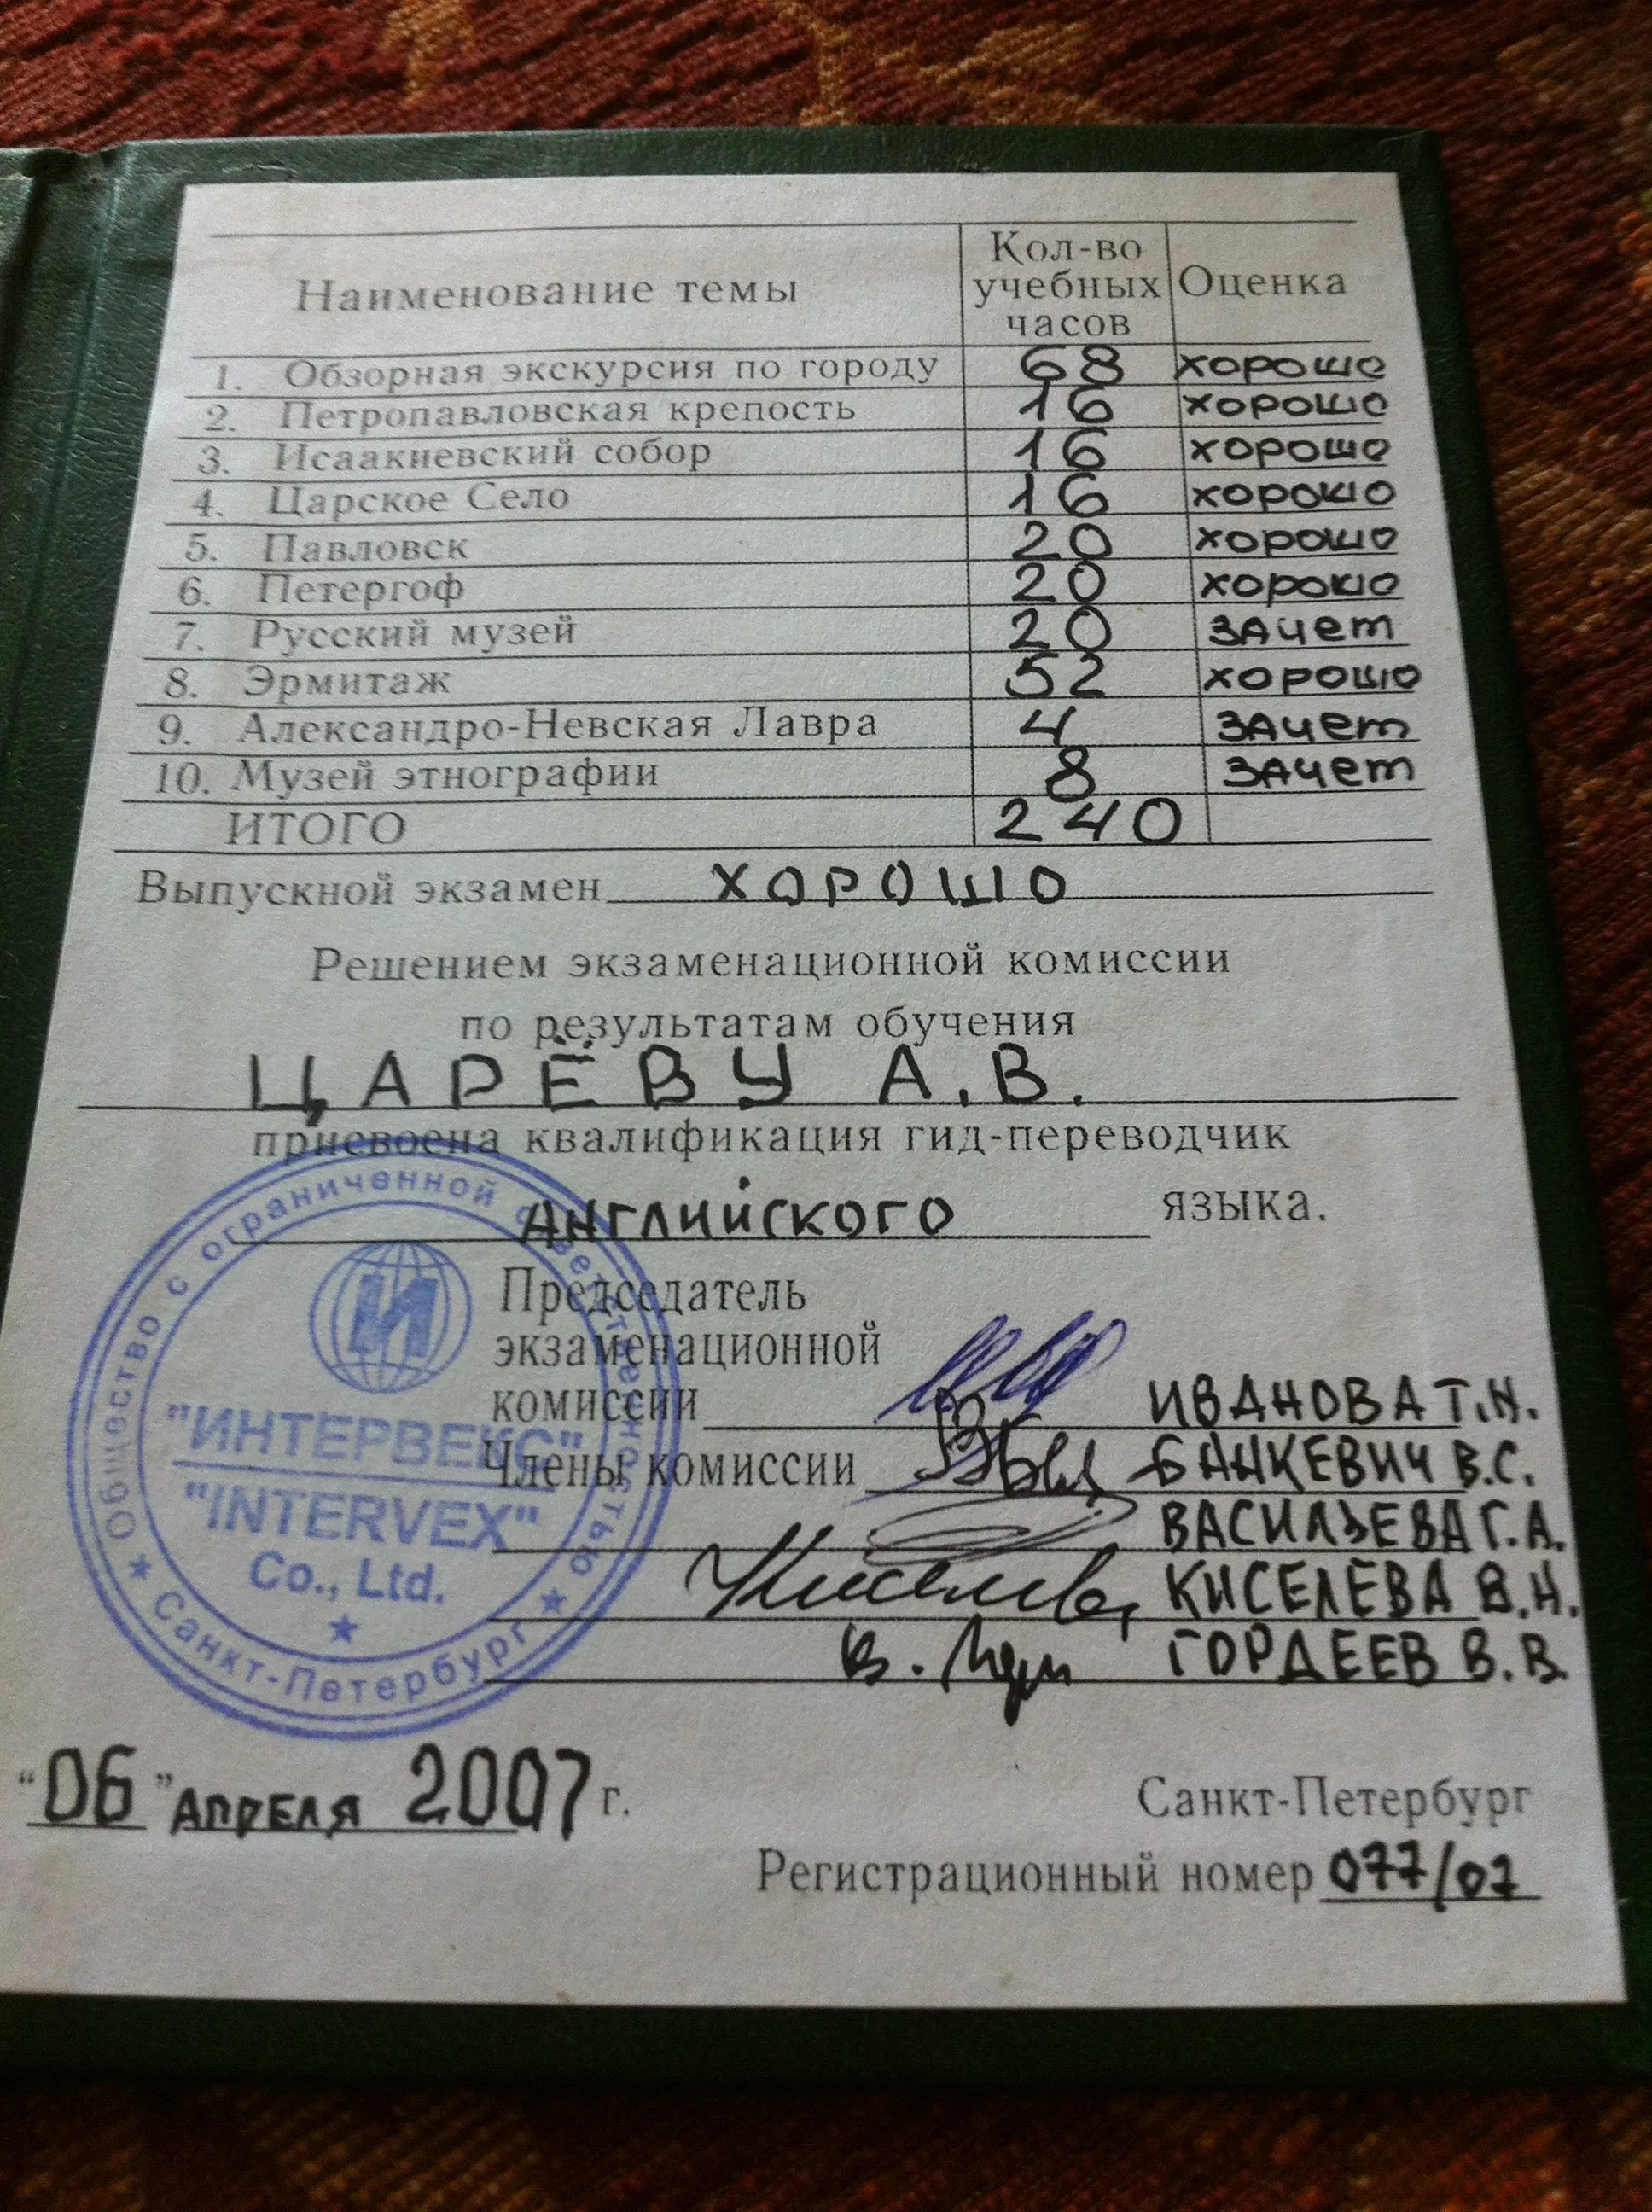 Наименование темы Кол-во учебных часов Оценка
1. Обзорная экскурсия по городу 68 хорошо
2. Петропавловская крепость 16 хорошо
3. Исаакиевский собор 16 хорошо
4. Царское Село 16 хорошо
5. Павловск 20 хорошо
6. Петергоф 20 хорошо
7. Русский музей 20 зачет
8. Эрмитаж 52 хорошо
9. Александро-Невская Лавра 4 зачет
10. Музей этнографии 8 зачет
ИТОГО 240
Выпускной экзамен хорошо
Решением экзаменационной комиссии
по результатам обучения
ЦАРЁВУ А.В.
присвоена квалификация гид-переводчик
английского языка.
Председатель
экзаменационной
комиссии ИВАНОВА Т.Н.
Члены комиссии БАНКЕВИЧ В.С.
ВАСИЛЬЕВА Г.А.
КИСЕЛЕВА В.Н.
ГОРДЕЕВ В.В.
Общество с ограниченной ответственностью
И
"ИНТЕРВЕКС"
"INTERVEX"
Co., Ltd.
Санкт-Петербург
"06" АПРЕЛЯ 2007 г.
Санкт-Петербург
Регистрационный номер 077/07